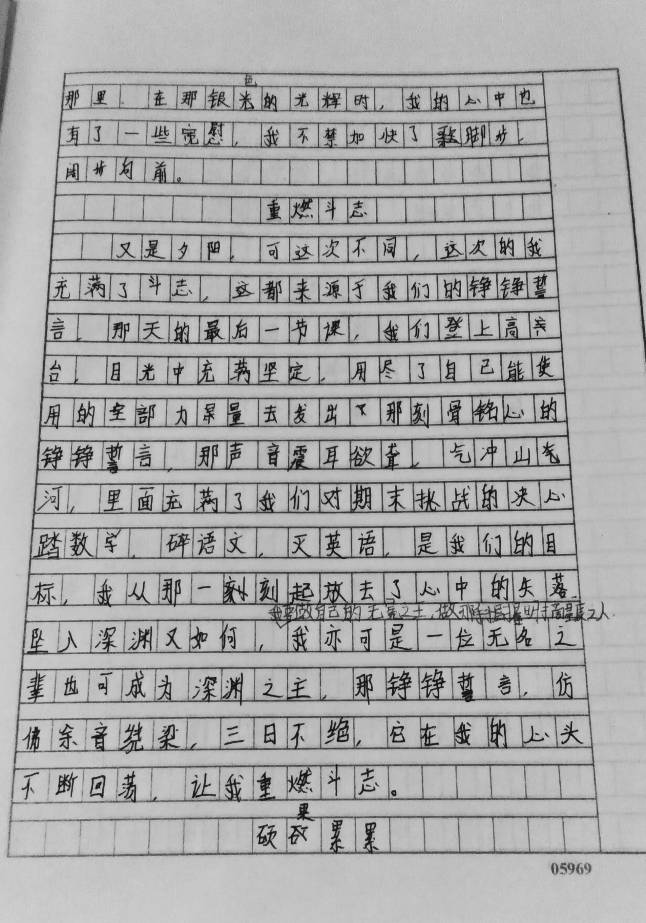 那里.在那银色的光辉时,我的心中也
有了一些宽慰,我不禁加快了脚步,
阔步向前。
重燃斗志
又是夕阳,可这次不同,这次的我
充满了斗志,这都来源于我们的铮铮誓
言.那天的最后一节课,我们登上高亲
台,目光中充满坚定,用尽了自己能使
用的全部力量去发出了那刻骨铭心的
铮铮誓言,那声音震耳欲聋,气冲山
河,里面充满了我们对期末挑战的决心
踏数学,碎语文,灭英语,是我们的目
标,我从那一刻起放去了心中的失落.
我要做自己的无冕之王,做那
坠入深渊又如何,我亦可是一位无名之
辈也可成为深渊之主,那铮铮誓言,仿
佛余音绕梁,三日不绝,它在我的心头
不断回荡,让我重燃斗志。
硕果累累
05969